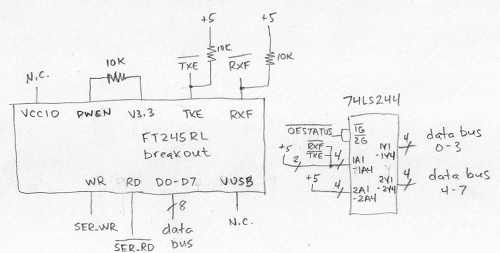 +5
+5
10K
10K
10K
TXE
RXF
N.C.
VCCIO PWEN V3.3 TXE RXF
FT245RL
breakout
WR RD D0-D7 VUSB
SER_WR
SER_RD
8
data
bus
N.C.
74LS244
OESTATUS
1G
2G
+5
2
RXF
TXE
4
1A1
-1A4
1Y1
-1Y4
4
data bus
0-3
+5
4
2A1
-2A4
2Y1
-2Y4
4
data bus
4-7